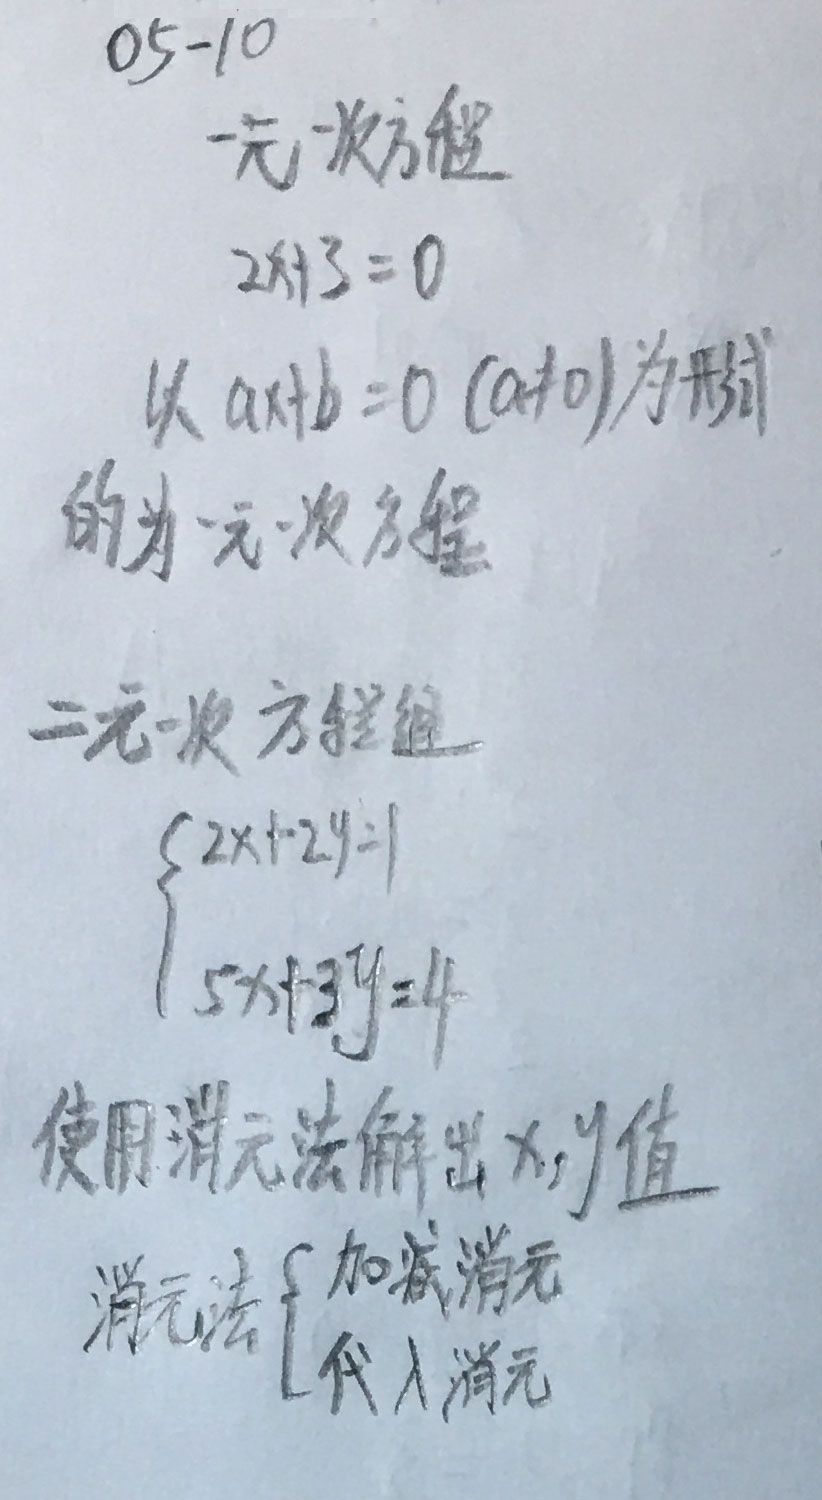 05-10
一元一次方程
2x+3=0
以 ax+b=0 (a≠0)为形式
的为一元一次方程
二元一次方程组
{2x+2y=1
5x+3y=4
使用消元法解出x,y值
消元法{加减消元
代入消元